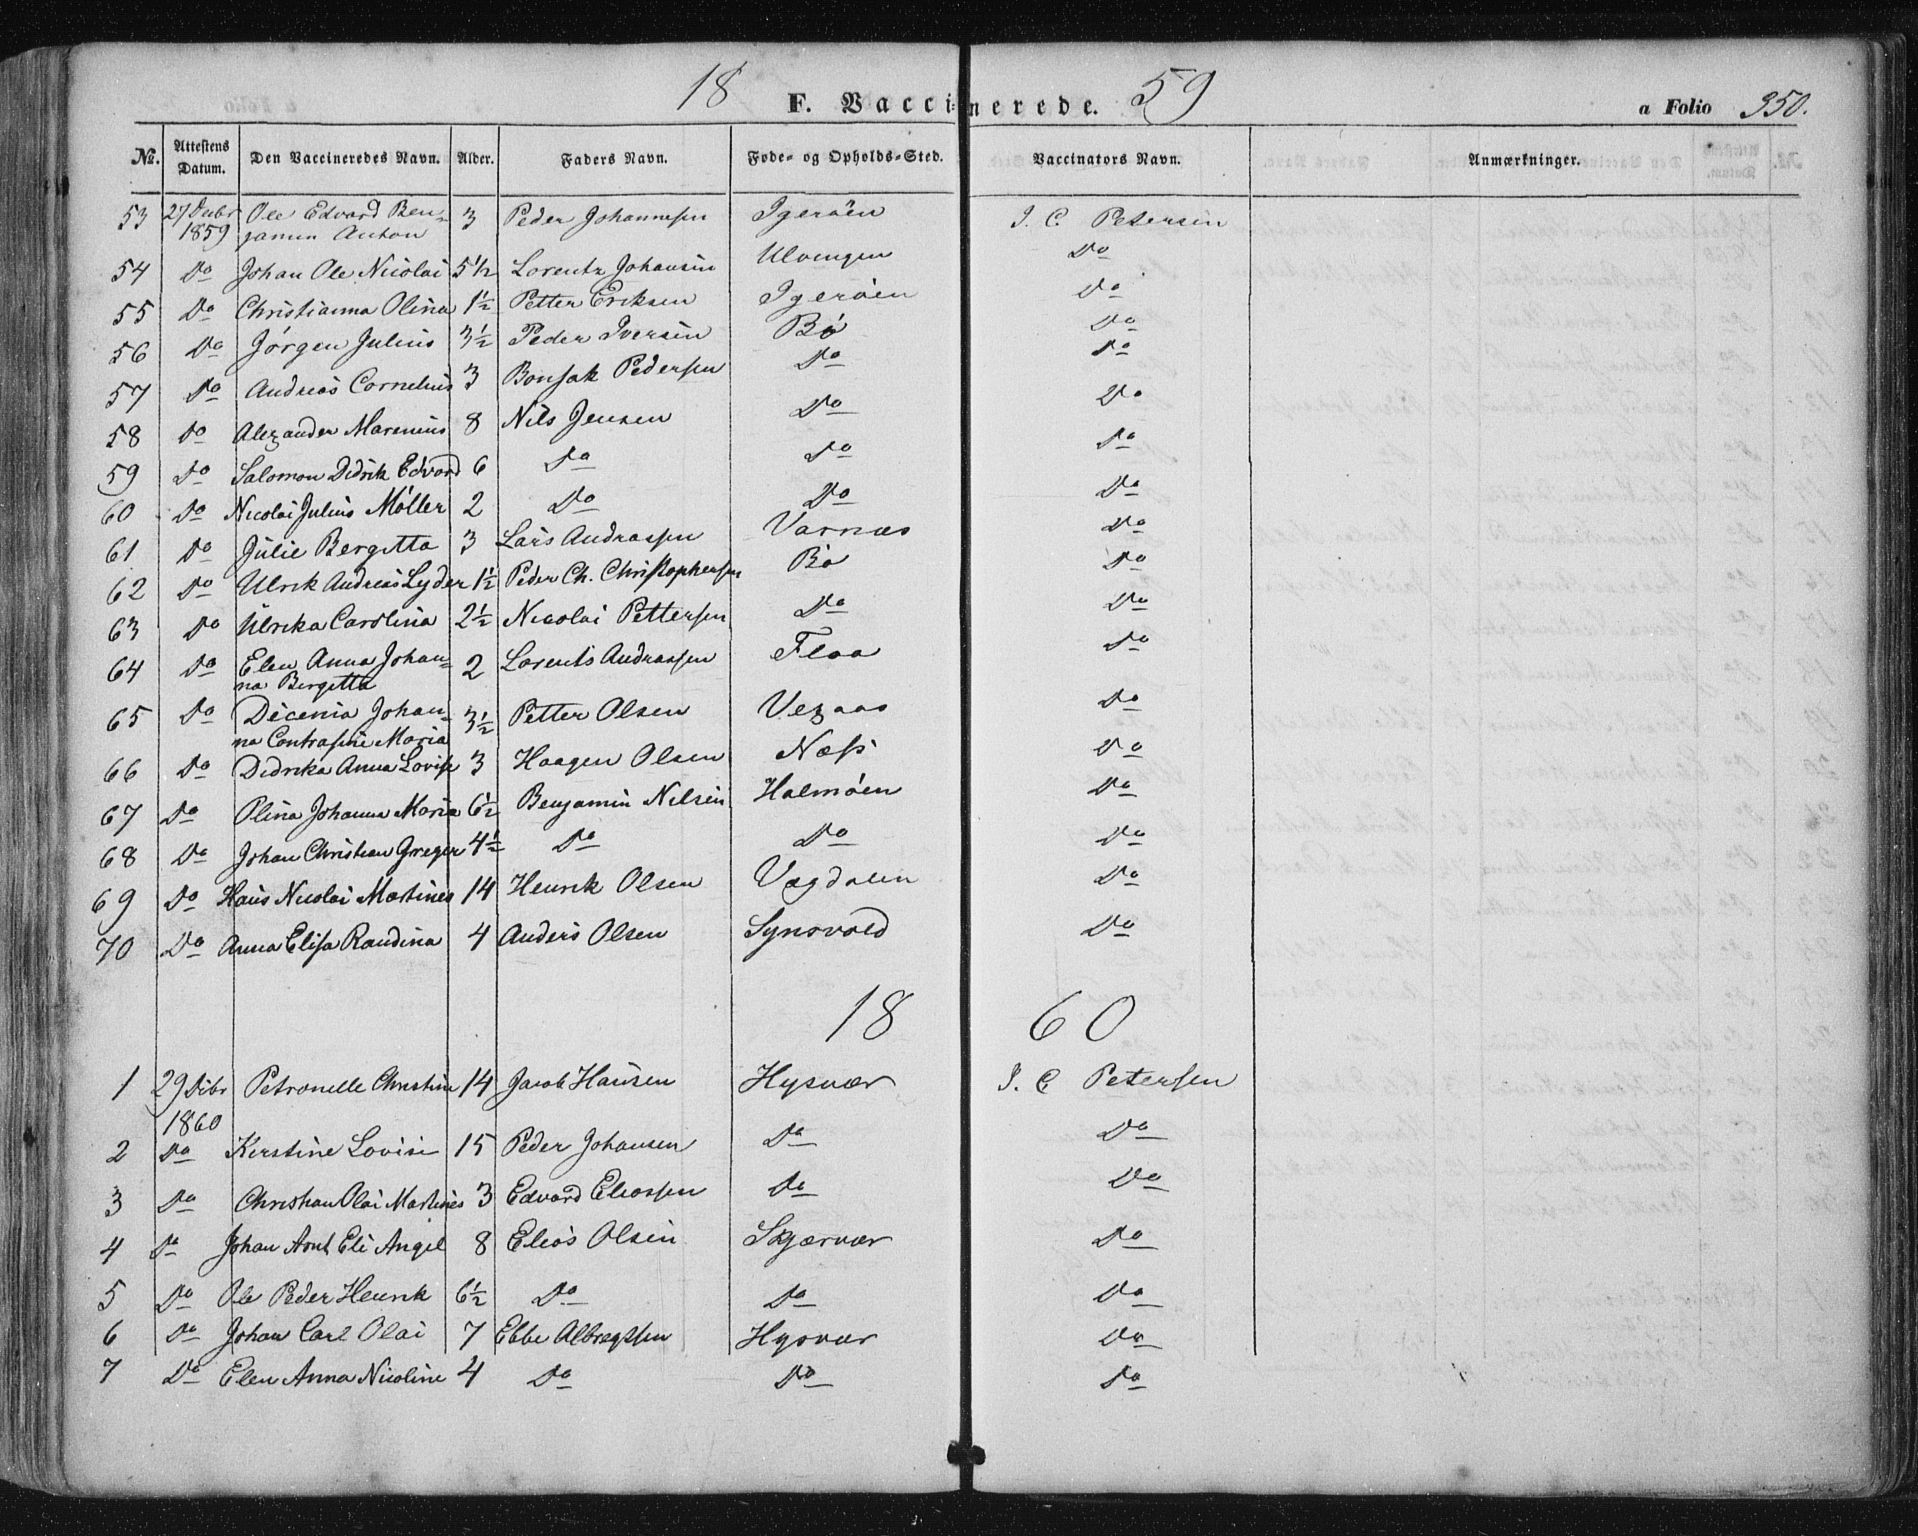 18 F. Vaccinerede. 59 a Folio 350.
№. Attestens Datum. Den Vaccineredes Navn. Alder. Faders Navn. Føde- og Opholds-Sted. Vaccinators Navn. Anmærkninger.
53 27 Decbr 1859 Ole Edvard Ben- 3 Peder Johannesen Igerøen I. C. Petersen
jamin Anton
54 Do Johan Ole Nicolai 5 1/2 Lorentz Johansen Ulvingen Do
55 Do Christianna Olina 1 1/2 Petter Eriksen Igerøen Do
56 Do Jørgen Julius 3 1/2 Peder Iversen Bø Do
57 Do Andreas Cornelius 3 Bonsak Pedersen Do Do
58 Do Alexander Marenius 8 Nils Jensen Do Do
59 Do Salomon Didrik Edvard 6 Do Do Do
60 Do Nicolai Julius Møller 2 Do Do Do
61 Do Julie Bergitta 3 Lars Andreassen Varnæs Do
62 Do Ulrik Andreas Lyder 1 1/2 Peder Ch. Christophersen Bø Do
63 Do Ulrika Carolina 2 1/2 Nicolai Pettersen Do Do
64 Do Elen Anna Johan- 2 Lorents Andreassen Floa Do
na Bergitta
65 Do Dicenia Johan- 3 1/2 Petter Olsen Vegaas Do
na Contrasine Maria
66 Do Didrika Anna Lovise 3 Haagen Olsen Næss Do
67 Do Olina Johanna Maria 6 1/2 Benjamin Nilsen Halmøen Do
68 Do Johan Christian Greger 4 1/2 Do Do Do
69 Do Hans Nicolai Martines 14 Henrik Olsen Vægdalen Do
70 Do Anna Elisa Randina 4 Anders Olsen Synsvold Do
18 60
1 29 Dcbr Petronelle Christine 14 Jacob Hansen Hysvær I. C. Petersen
1860
2 Do Kirstine Lovise 15 Peder Johansen Do Do
3 Do Christian Olai Martines 3 Edvard Eliassen Do Do
4 Do Johan Arnt Eli Angel 8 Elias Olsen Skjærvær Do
5 Do Ole Peder Henrik 6 1/2 Do Do Do
6 Do Johan Carl Olai 7 Ebbe Albregtsen Hysvær Do
7 Do Elen Anna Nicoline 4 Do Do Do